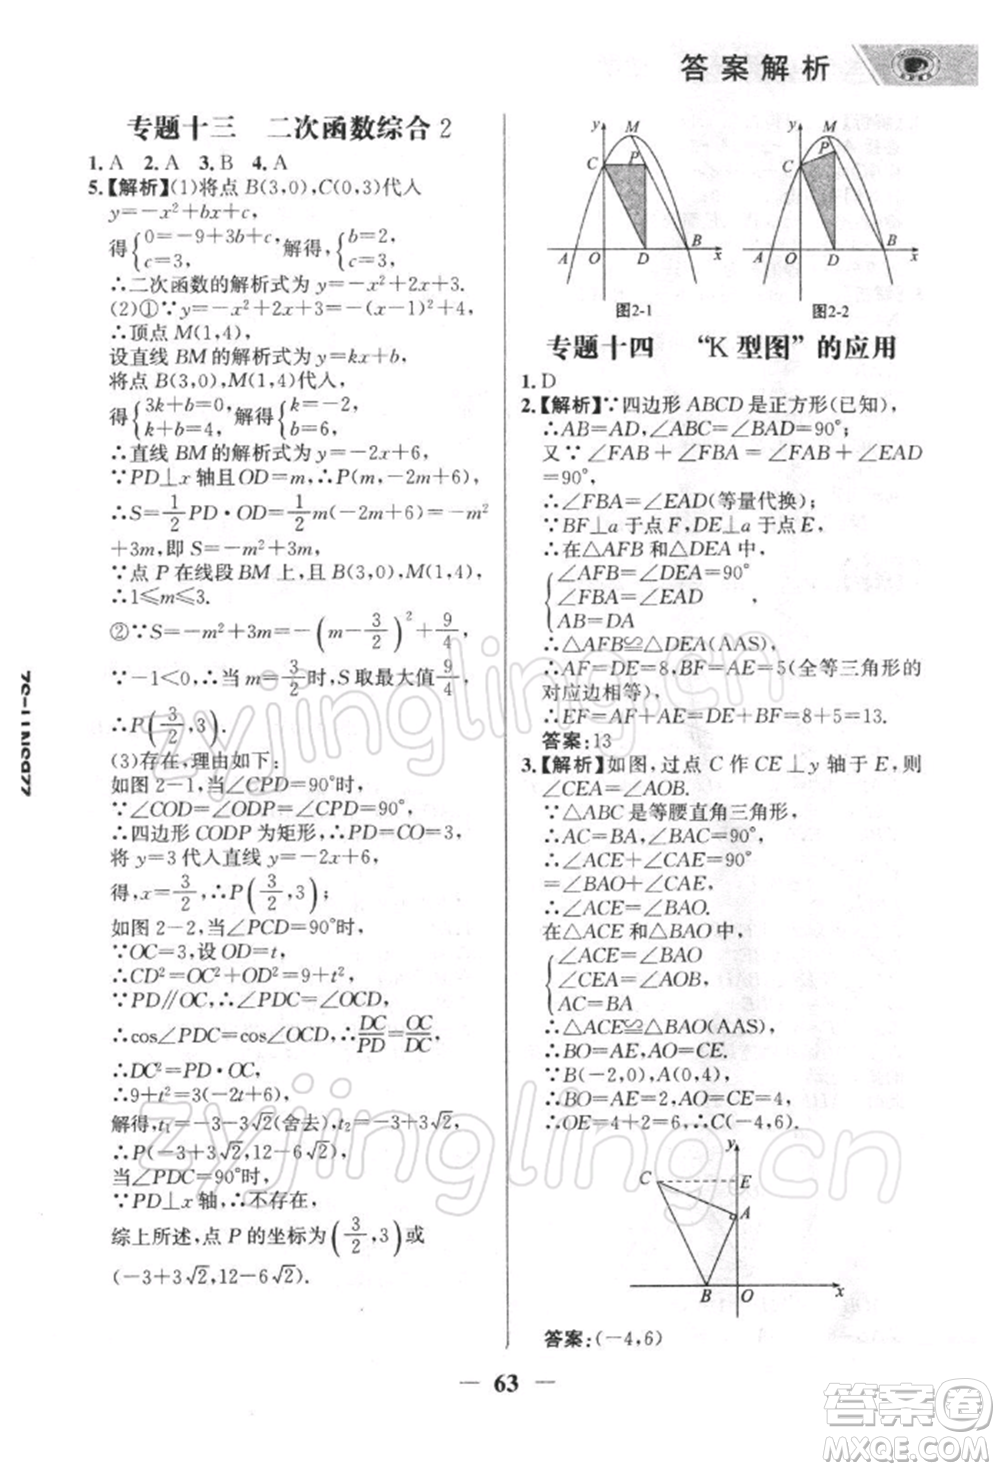 答案解析
专题十三 二次函数综合2
1. A 2. A 3. B 4. A
5.【解析】(1)将点 B(3,0),C(0,3)代入
y=-x²+bx+c,
得{0=-9+3b+c, c=3, 解得,{b=2, c=3,
∴二次函数的解析式为 y=-x²+2x+3.
(2)①∵y=-x²+2x+3=-(x-1)²+4,
∴顶点 M(1,4),
设直线 BM 的解析式为 y=kx+b,
将点 B(3,0),M(1,4)代入,
得{3k+b=0, k+b=4, 解得{k=-2, b=6,
∴直线 BM 的解析式为 y=-2x+6,
∵PD⊥x 轴且 OD=m,∴P(m,-2m+6),
∴S=1/2 PD·OD=1/2 m(-2m+6)=-m²
+3m,即 S=-m²+3m,
∵点 P 在线段 BM 上,且 B(3,0),M(1,4),
∴1≤m≤3.
②∵S=-m²+3m=-(m-3/2)²+9/4,
∵-1<0,∴当 m=3/2时,S 取最大值,
∴P(3/2,3).
(3)存在,理由如下:
如图 2-1,当∠CPD=90°时,
∵∠COD=∠ODP=∠CPD=90°,
∴四边形 CODP 为矩形,∴PD=CO=3,
将 y=3 代入直线 y=-2x+6,
得,x=3/2,∴P(3/2,3);
如图 2-2,当∠PCD=90°时,
∵OC=3,设 OD=t,
∴CD²=OC²+OD²=9+t²,
∵PD∥OC,∴∠PDC=∠OCD,
∴cos∠PDC=cos∠OCD,∴DC/PD=OC/DC,
∴DC²=PD·OC,
∴9+t²=3(-2t+6),
解得,t₁=-3-3√2(舍去),t₂=-3+3√2,
∴P(-3+3√2,12-6√2),
当∠PDC=90°时,
∵PD⊥x 轴,∴不存在,
综上所述,点 P 的坐标为(3/2,3)或
(-3+3√2,12-6√2).
y M C P A O D B x
图2-1
y M C P A O D B x
图2-2
专题十四 “K 型图”的应用
1. D
2.【解析】∵四边形 ABCD 是正方形(已知),
∴AB=AD,∠ABC=∠BAD=90°;
又∵∠FAB+∠FBA=∠FAB+∠EAD
=90°,
∴∠FBA=∠EAD(等量代换);
∵BF⊥a 于点 F,DE⊥a 于点 E,
∴在△AFB 和△DEA 中,
{∠AFB=∠DEA=90°
∠FBA=∠EAD ,
AB=DA
∴△AFB≌△DEA(AAS),
∴AF=DE=8,BF=AE=5(全等三角形的
对应边相等),
∴EF=AF+AE=DE+BF=8+5=13.
答案:13
3.【解析】如图,过点 C 作 CE⊥y 轴于 E,则
∠CEA=∠AOB.
∵△ABC 是等腰直角三角形,
∴AC=BA,∠BAC=90°,
∴∠ACE+∠CAE=90°
=∠BAO+∠CAE,
∴∠ACE=∠BAO.
在△ACE 和△BAO 中,
{∠ACE=∠BAO
∠CEA=∠AOB,
AC=BA
∴△ACE≌△BAO(AAS),
∴BO=AE,AO=CE.
∵B(-2,0),A(0,4),
∴BO=AE=2,AO=CE=4,
∴OE=4+2=6,∴C(-4,6).
y C E A B O x
答案:(-4,6)
63
zyjingling.cn
zyjingling.cn
答案圈
MXQE.COM